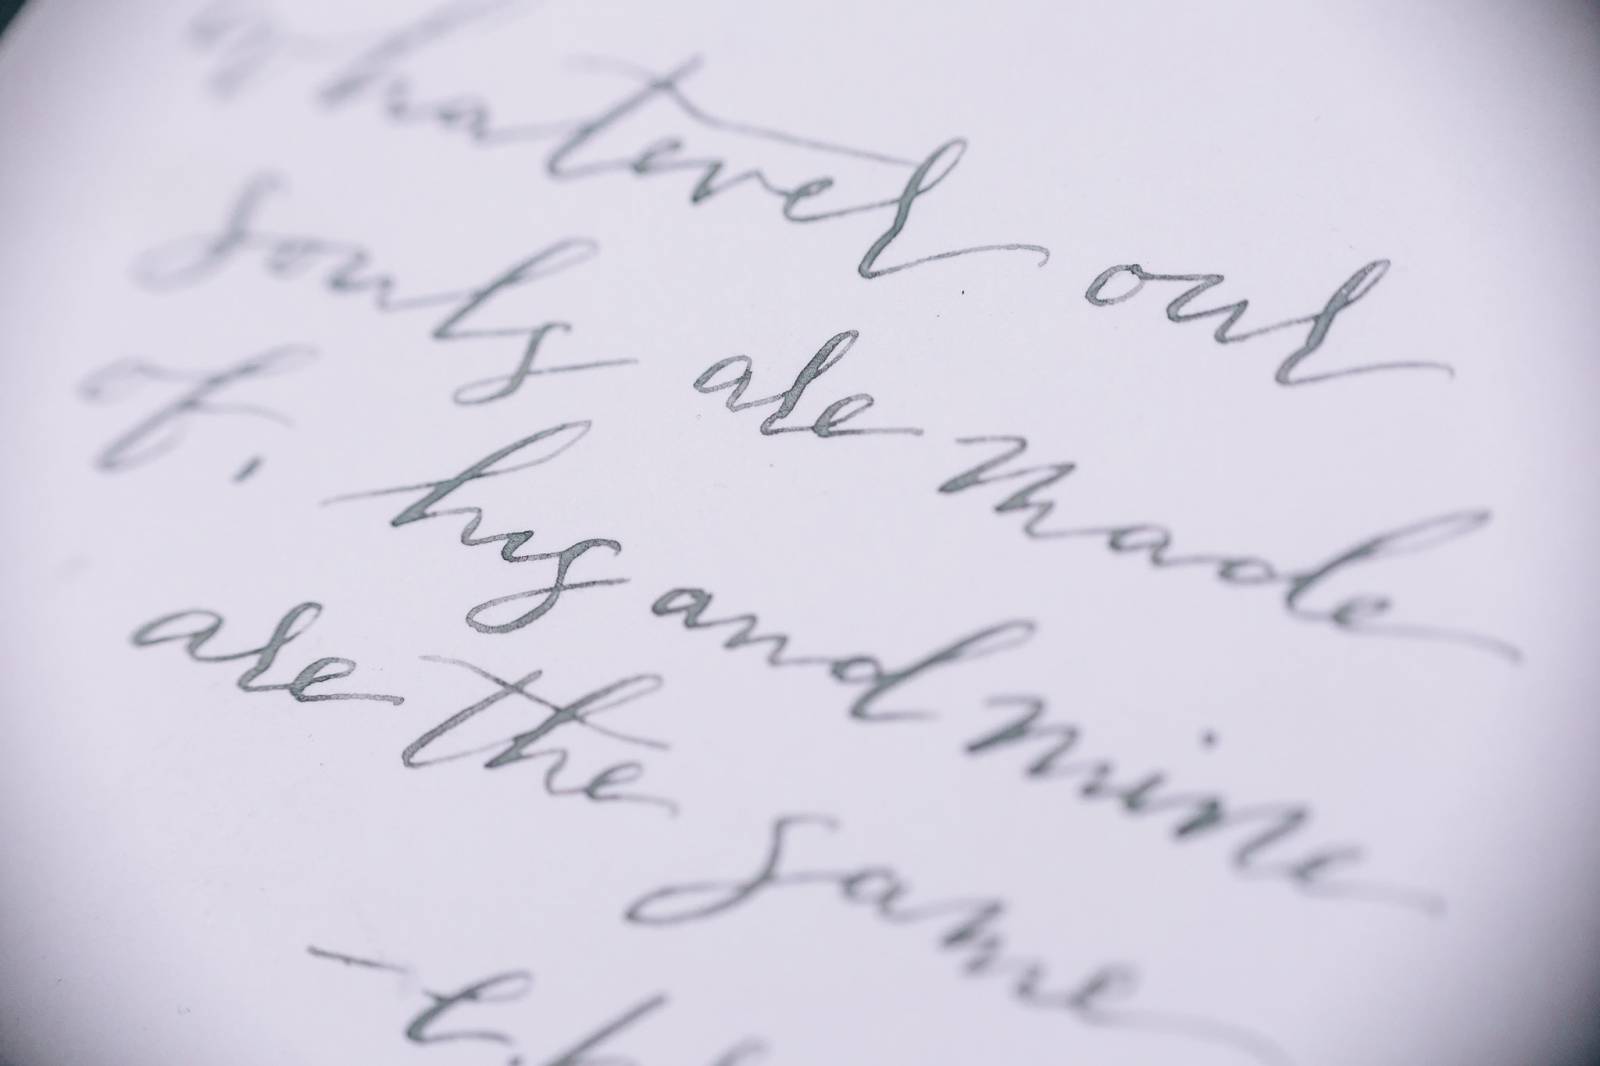 Whatever our
souls are made
of, his and mine
are the same